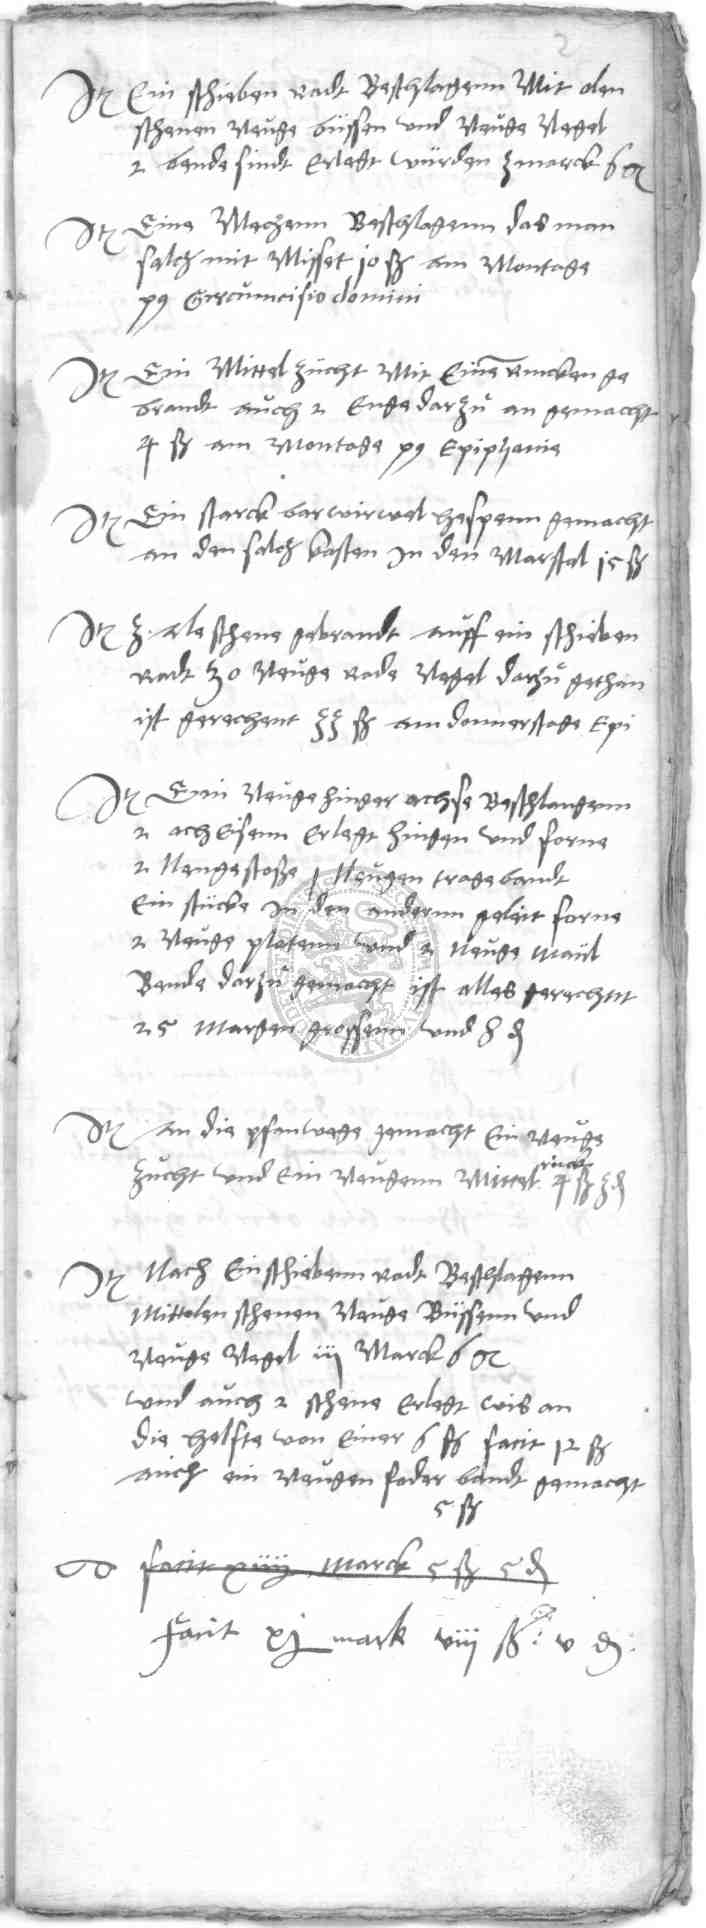 2
Itm Ein schieben radt Beschlagenn Mit olen
schenen Neuge büssen und Neuge Negel
2 bende sindt Erlegt würden 3 marck 6 gr
Itm Eine Mechenn Beschlagenn das man
salcz mit Misset 10 ß am Montage
p9 Circumcisio domini
Itm Ein Mittel zücht Mit Eine rincken ge
brandt auch 2 Enge darzü an gemacht
4 ß am Montage p9 Epiphanie
Itm Ein starck barwirwel hespenn gemacht
an den salcz kasten In den Marstal 15 ß
Itm 3 ale schene gebrandt auff ein schieben
radt 30 Neuge rade Negel darzü gethan
ist gerechent 33 ß am donnerstage Epi
Itm Ein Neuge hinger achse Beschlangenn
2 ach Eisenn Erlegt hingen und forne
2 Nengestosse j Neugen tragebandt
Ein stücke In den andernn geleit forne
2 Neuge platenn und 2 Neuge Maül
Bende darzü gemacht ist alles gerechnt
25 Margen grossenn und 8 d
Itm an die pfanwege gemacht Ein Neuge
zücht und Ein Neugenn Mittel rinck 4 ß 3 d
Itm Nach Ein schiebenn radt Beschlagenn
Mitt olen schenen Neuge Büssenn und
Neuge Negel iij Marck 6 gr
und auch 2 schene Erlegt wis an
die helfte von Einer 6 ß facit 12 ß
auch ein Neugen feder bandt gemacht
5 ß
facit xiiij Marck 5 ß 5 d
Facit xj mark viij ß : v d :